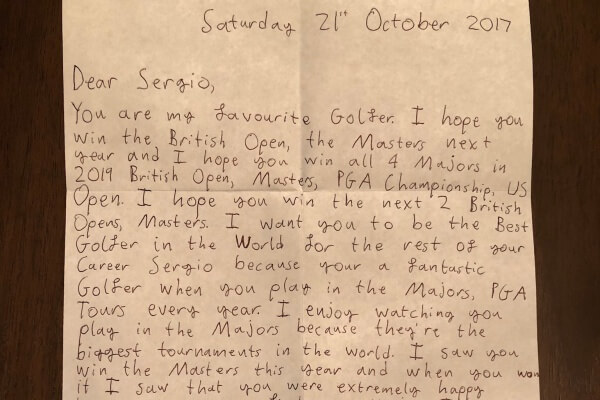 Saturday 21st October 2017
Dear Sergio,
You are my favourite Golfer. I hope you
win the British Open, the Masters next
year and I hope you win all 4 Majors in
2019 British Open, Masters, PGA Championship, US
Open. I hope you win the next 2 British
Opens, Masters. I want you to be the Best
Golfer in the World for the rest of your
Career Sergio because your a fantastic
Golfer when you play in the Majors, PGA
Tours every year. I enjoy watching you
play in the Majors because they're the
biggest tournaments in the world. I saw you
win the Masters this year and when you won
it I saw that you were extremely happy